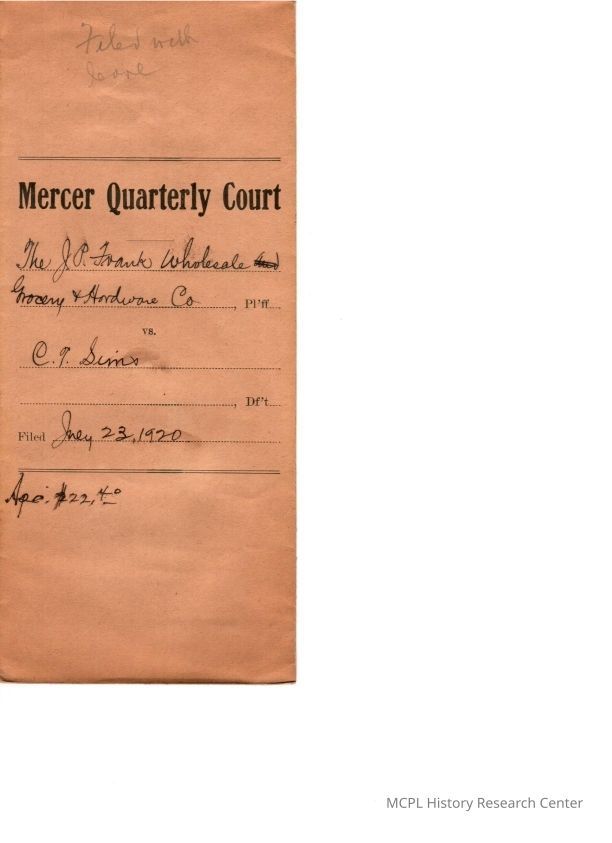 Filed with
leave
Mercer Quarterly Court
The J.P. Frank Wholesale
Grocery & Hardware Co , Pl'ff
vs.
C. T. Sims
, Df't
Filed 23, 1920
$22,40
MCPL History Research Center